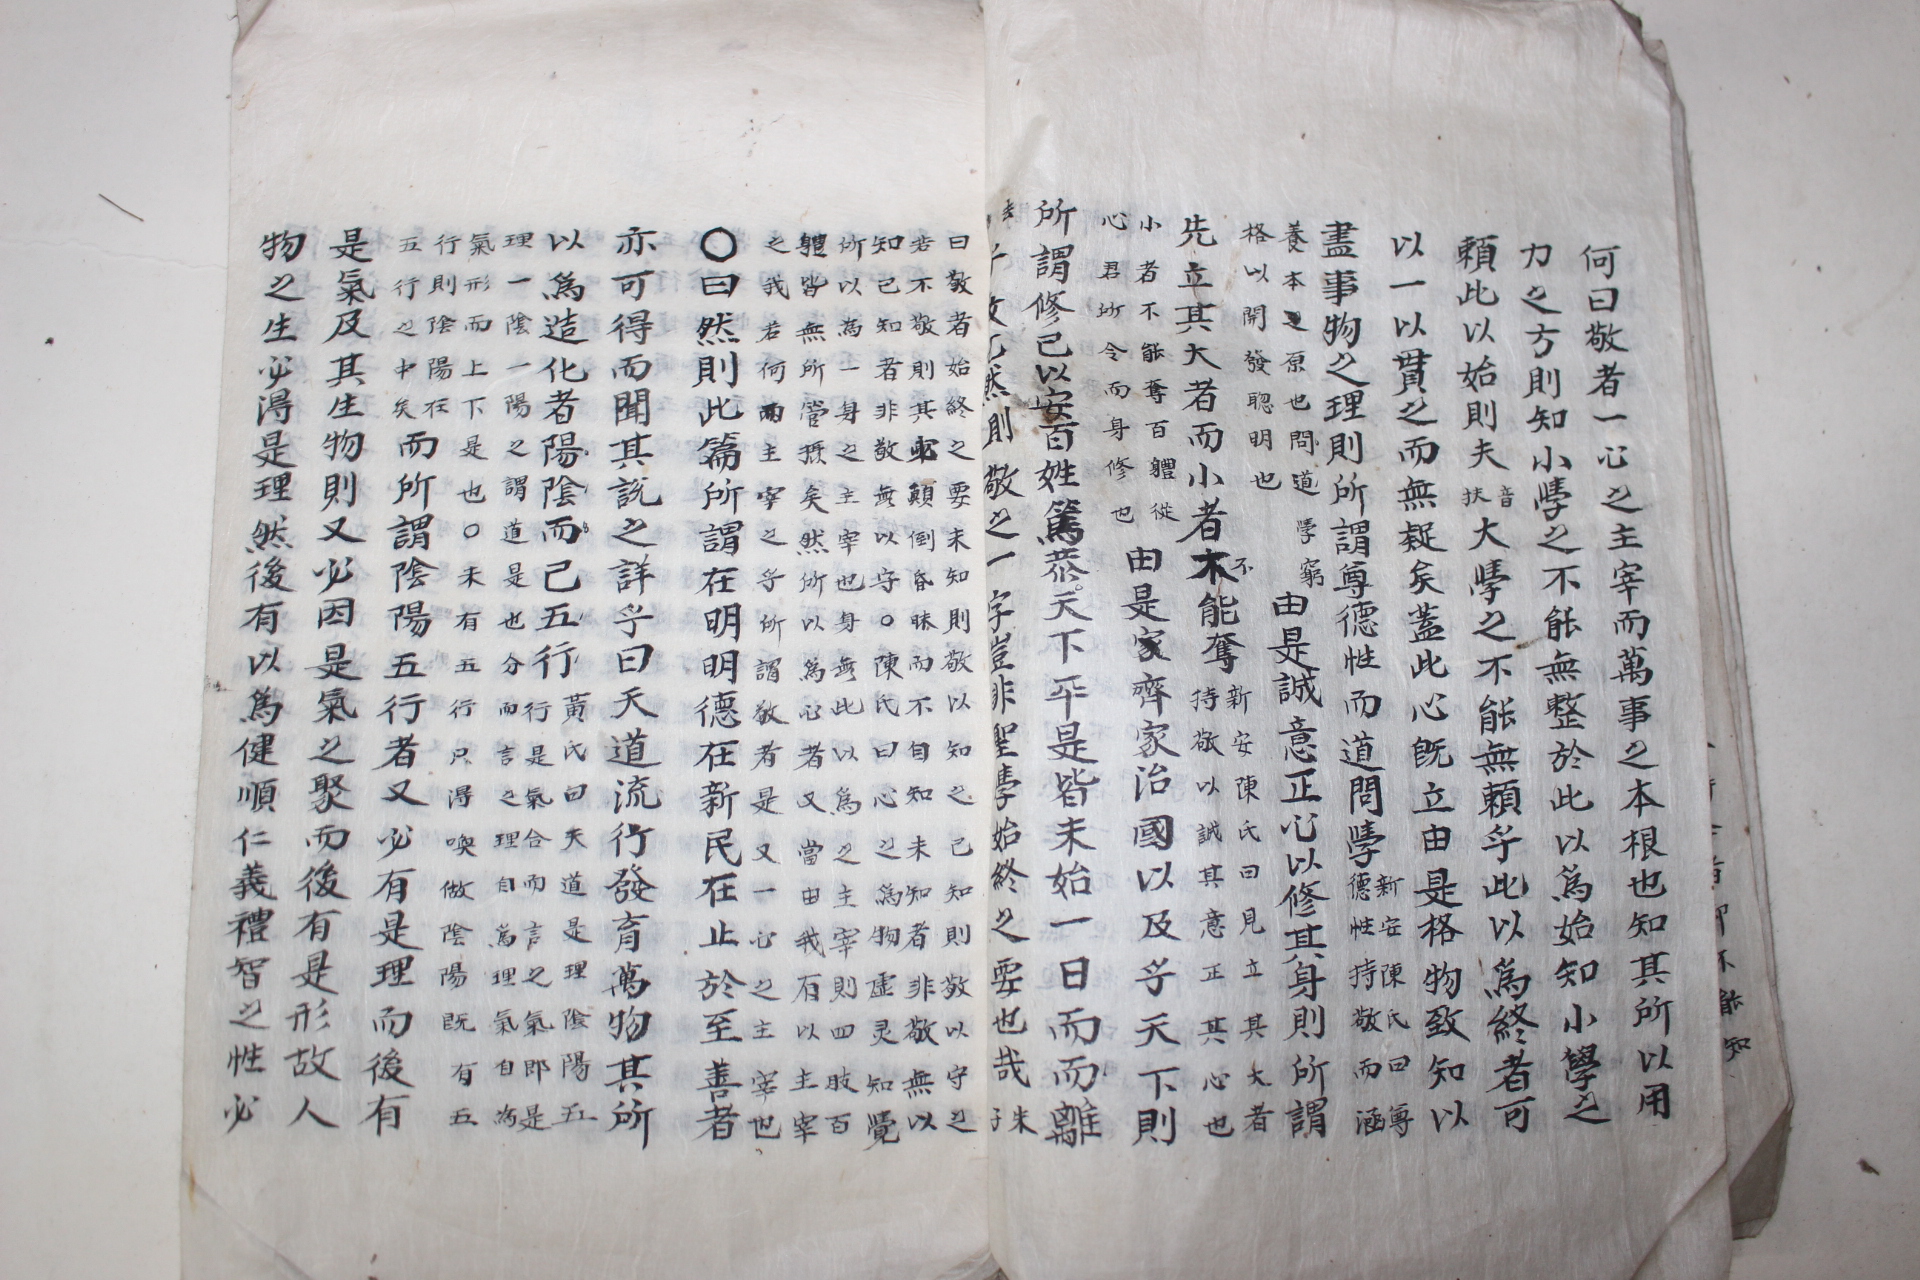 何曰敬者一心之主宰而萬事之本根也知其所以用
力之方則知小學之不能無整於此以爲始知小學之
賴此以始則夫音扶大學之不能無賴乎此以爲終者可
以一以貫之而無疑矣蓋此心旣立由是格物致知以
盡事物之理則所謂尊德性而道問學新安陳氏曰尊德性持敬而涵
養本之原也問道學窮格以開發聰明也由是誠意正心以修其身則所謂
先立其大者而小者不能奪新安陳氏曰見立其大者持敬以誠其意正其心也
小者不能奪百體從心君所令而身修也由是家齊家治國以及乎天下則
所謂修己以安百姓篤恭天下平是皆未始一日而而離
乎敬也然則敬之一字豈非聖學始終之要也哉朱子
曰敬者始終之要未知則敬以知之已知則敬以守之
若不敬則其心顚倒昏昧而不自知未知者非敬無以
知已知者非敬無以守○陳氏曰心之爲物虛灵知覺
所以為一身之主宰也身無此以爲之主宰則四肢百
體皆無所管摂矣然所以爲心者又當由我有以主宰
之我若何而主宰之乎所謂敬者是又一心之主宰也
○曰然則此篇所謂在明明德在新民在止於至善者
亦可得而聞其説之詳乎曰天道流行發育萬物其所
以爲造化者陽陰而己五行黃氏曰天道是理陰陽五行是氣合而言之氣即是
理一陰一陽之謂道是也分而言之理自為理氣自為
氣形而上下是也○未有五行只淂喚做陰陽旣有五
行則陰陽在五行之中矣而所謂陰陽五行者又必有是理而後有
是氣及其生物則又必因是氣之聚而後有是形故人
物之生必淂是理然後有以爲健順仁義禮智之性必